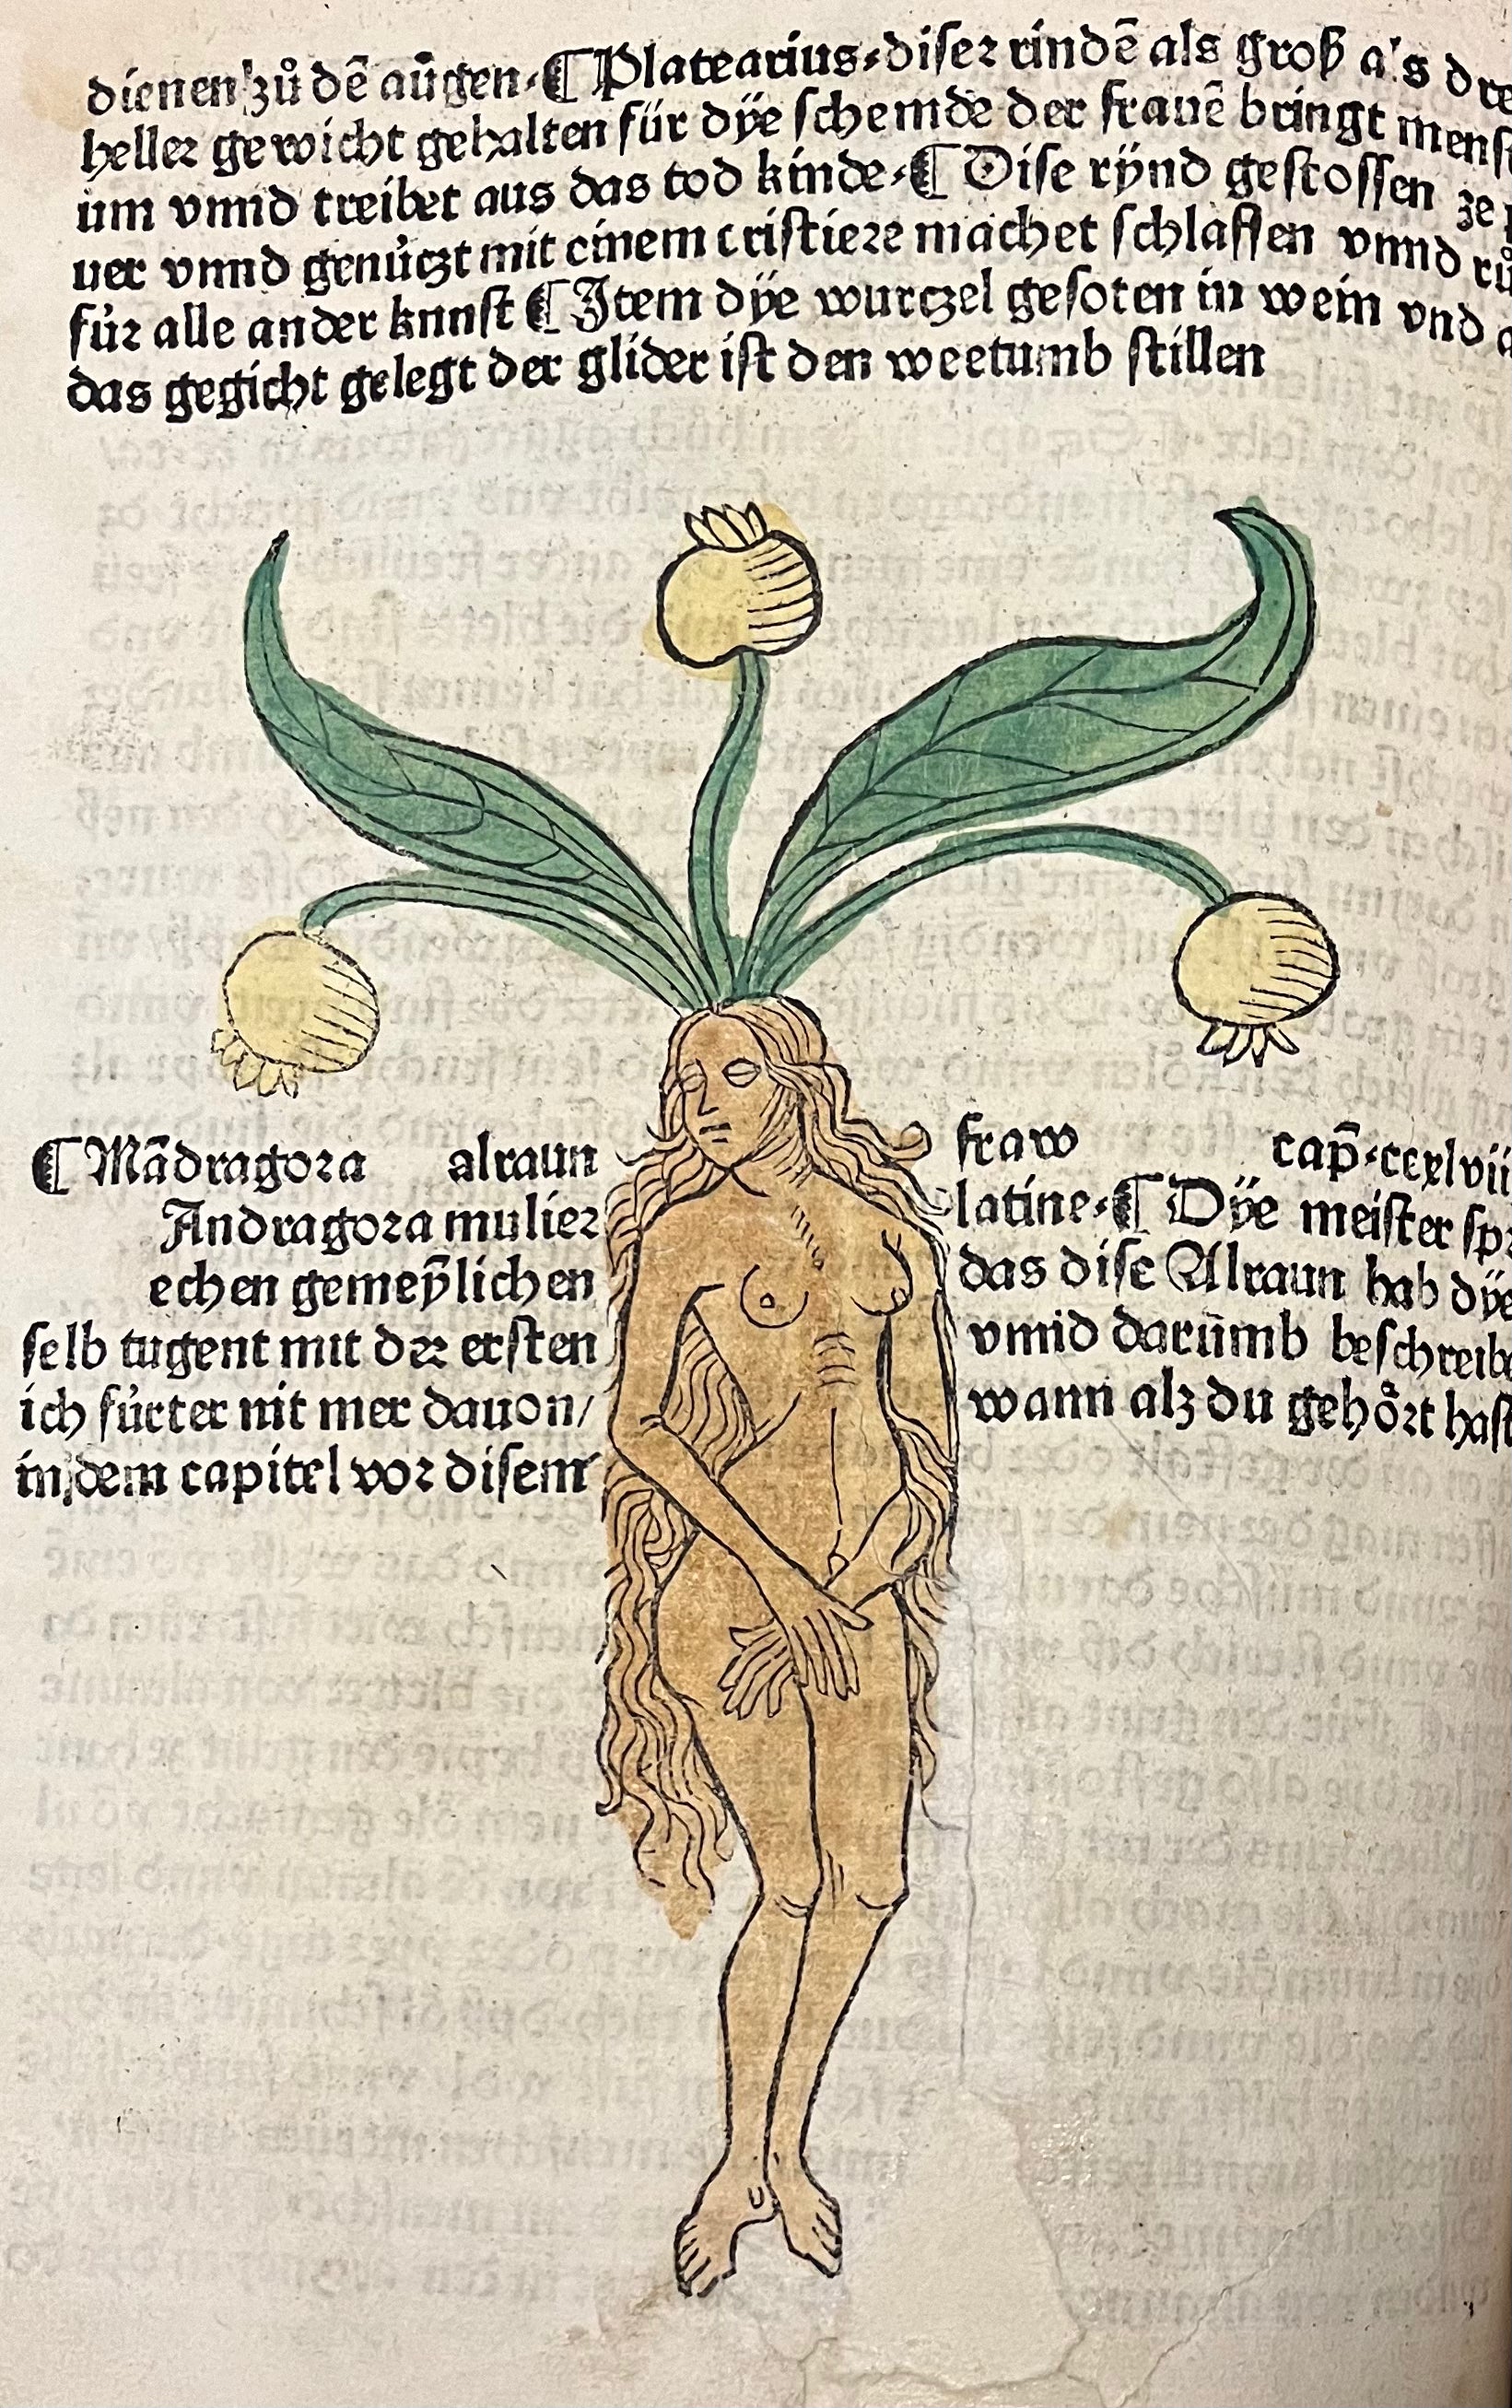 dienen zů dē aūgen·¶ Platearius·diser rindē als groß als dre
heller gewicht gehalten für dÿe schemde der frauē bringt menst
um vnnd treibet aus das tod kinde·¶ Dise rÿnd gestossen ze
uer vnnd genůczt mit einem cristiere machet schlaffen vnnd rů
für alle ander knnst ¶ Jtem dÿe wurczel gesoten in wein vnd
das gegicht gelegt der glider ist den weetumb stillen
¶ Mādragora alraun fraw cap̄·ccxlvii
Andragora mulier latine·¶ Dÿe meister spr
echen gemeȳlichen das dise Alraun hab dÿe
selb tugent mit der ersten vnnd darūmb beschreibe
ich fürter nit mer dauon/ wann alz du gehört hast
in dem capitel vor disem